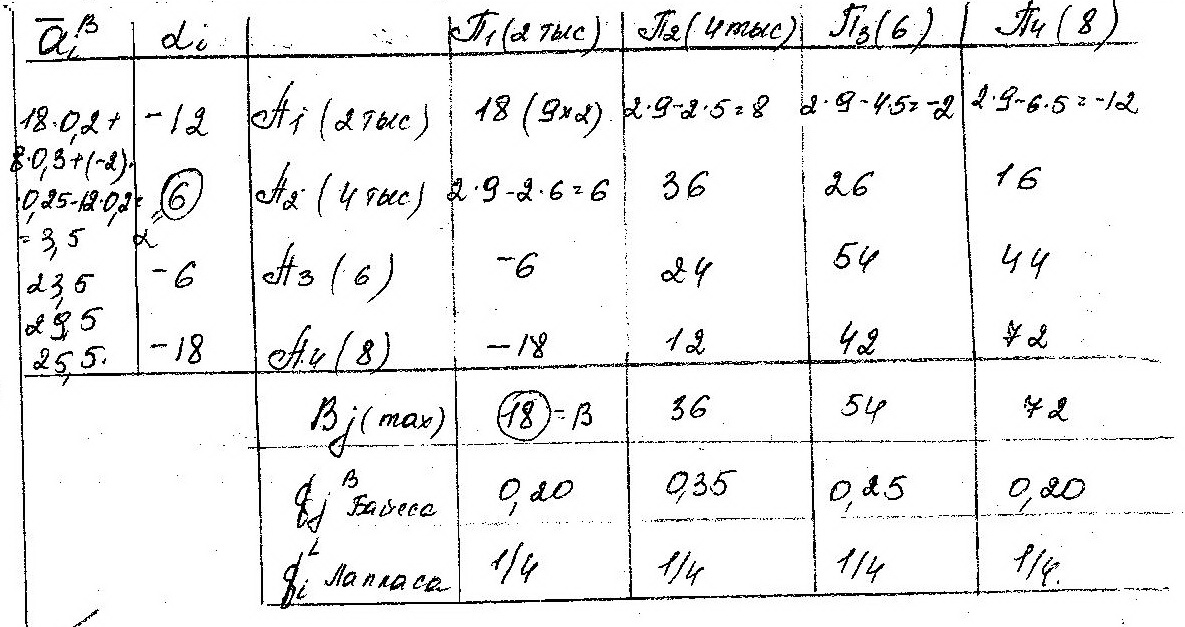 ā_i^B α_i П₁ (2 тыс) П₂ (4 тыс) П₃ (6) П₄ (8)
18·0,2+ -12 А₁ (2 тыс) 18 (9×2) 2·9-2·5=8 2·9-4·5=-2 2·9-6·5=-12
8·0,3+(-2)·
·0,25-12·0,2= 6 А₂ (4 тыс) 2·9-2·6=6 36 26 16
=3,5 α
23,5 -6 А₃ (6) -6 24 54 44
29,5
25,5. -18 А₄ (8) -18 12 42 72
B_j (max) 18 = β 36 54 72
q_j^B Байеса 0,20 0,35 0,25 0,20
q_i^L Лапласа 1/4 1/4 1/4 1/4.